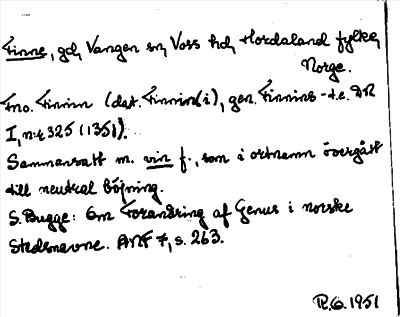 Finne, gd, Vangen sn, Voss hd, Hordaland fylke,
Norge.
Fno. Finnin (dat. Finnin(i)), gen. Finnins - t.e. DN
I, nr 325 (1351).
Sammansatt m. vin f., som i ortnamn övergått
till neutral böjning.
S. Bugge: Om Forandring af Genus i norske
Stedsnavne. ANF 7, s. 263.
R.G. 1951